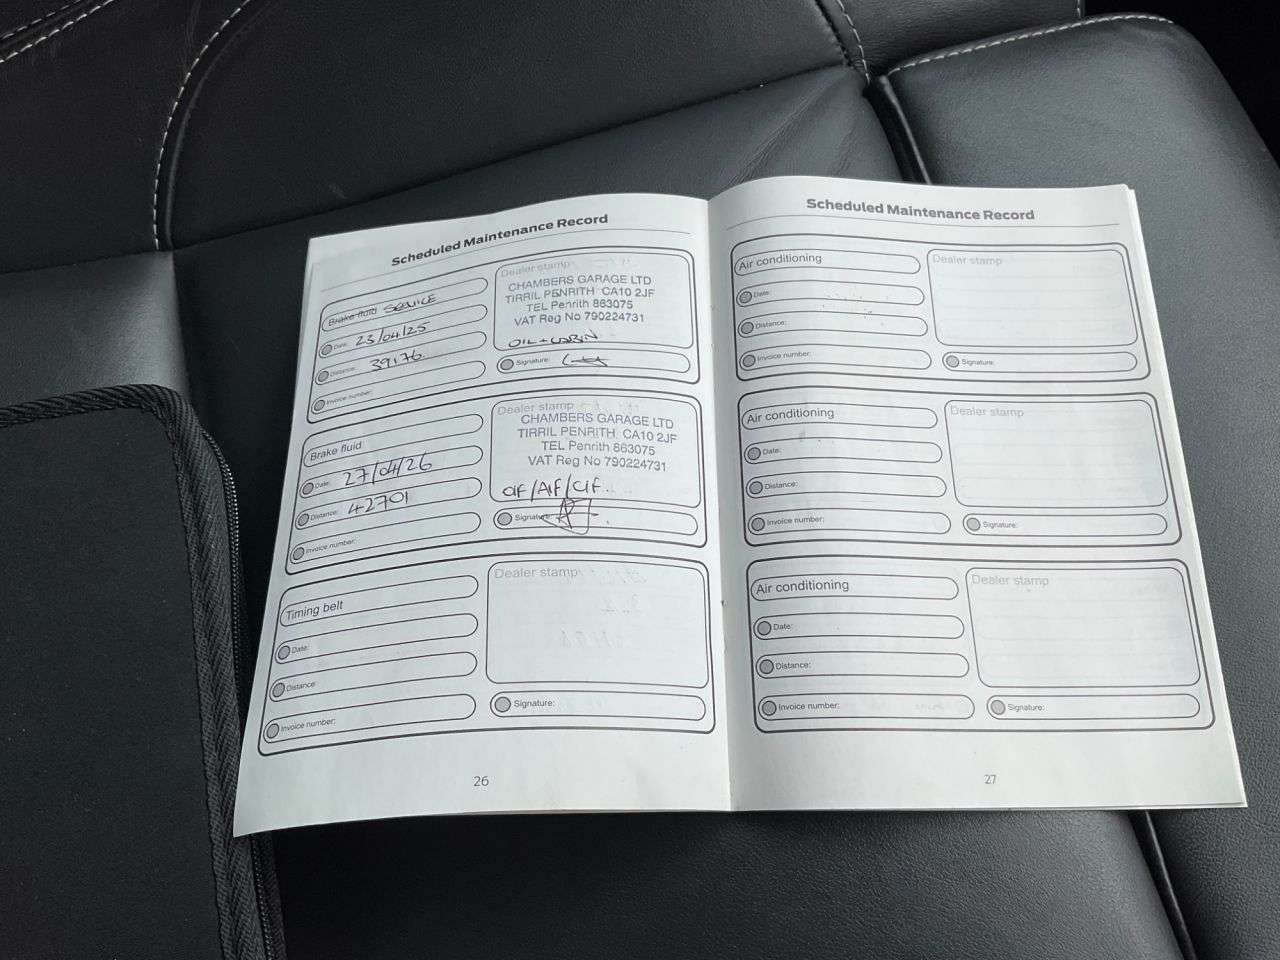 Scheduled Maintenance Record
Brake fluid SERVICE
Date: 23/04/25
Distance: 39176
Invoice number:
Dealer stamp
CHAMBERS GARAGE LTD
TIRRIL PENRITH CA10 2JF
TEL Penrith 863075
VAT Reg No 790224731
OIL + CABIN
Signature:
Brake fluid
Date: 27/04/26
Distance: 42701
Invoice number:
Dealer stamp
CHAMBERS GARAGE LTD
TIRRIL PENRITH CA10 2JF
TEL Penrith 863075
VAT Reg No 790224731
OIF/AIF/CIF
Signature:
Timing belt
Date:
Distance:
Invoice number:
Dealer stamp
Signature:
26
Scheduled Maintenance Record
Air conditioning
Date:
Distance:
Invoice number:
Dealer stamp
Signature:
Air conditioning
Date:
Distance:
Invoice number:
Dealer stamp
Signature:
Air conditioning
Date:
Distance:
Invoice number:
Dealer stamp
Signature:
27